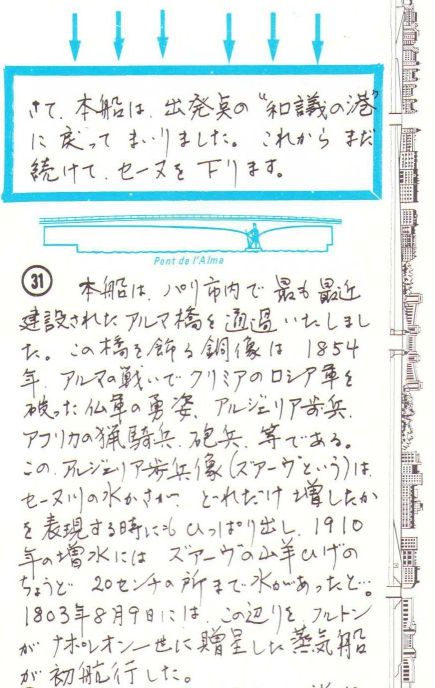 さて、本船は、出発点の“和議の港”
に戻ってまいりました。これからまだ
続けて、セーヌを下ります。
Pont de l'Alma
31 本船は、パリ市内で最も最近
建設されたアルマ橋を通過いたしまし
た。この橋を飾る銅像は1854
年、アルマの戦いでクリミアのロシア軍を
破った仏軍の勇姿、アルジェリア歩兵、
アフリカの猟騎兵、砲兵、等である。
この、アルジェリア歩兵像(ズアーヴという)は、
セーヌ川の水かさが、どれだけ増したか
を表現する時にも ひっぱり出し、1910
年の増水には ズアーヴの山羊ひげの
ちょうど 20センチの所まで水があったと…。
1803年8月9日には、この辺りを、フルトン
が ナポレオン一世に贈呈した蒸気船
が 初航行した。